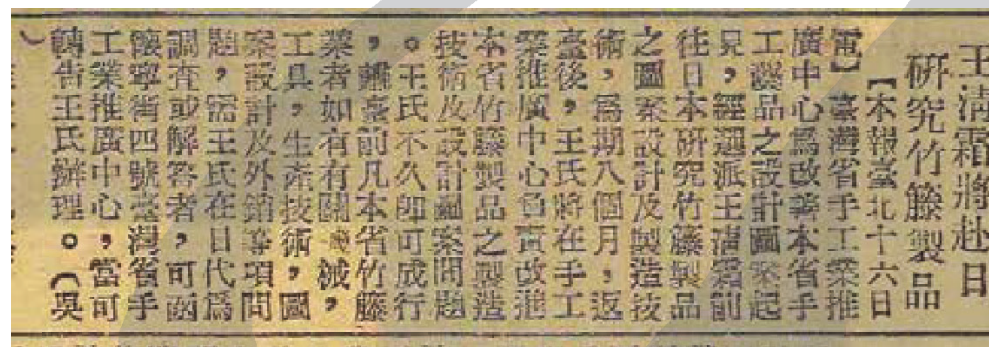 王清霜將赴日
研究竹籐製品
【本報臺北十六日
電】臺灣省手工業推
廣中心爲改善本省手
工藝品之設計圖案起
見,經選派王清霜前
往日本研究竹籐製品
之圖案設計及製造技
術,爲期八個月,返
臺後,王氏將在手工
業推廣中心負責改進
本省竹籐製品之製造
技術及設計圖案問題
。王氏不久卽可成行
,離臺前凡本省竹籐
業者如有有關機械,
工具,生產技術,圖
案設計及外銷等項問
題,需王氏在日代爲
調查或解答者,可函
懷寧街四號臺灣省手
工業推廣中心,當可
轉告王氏辦理。(吳
)